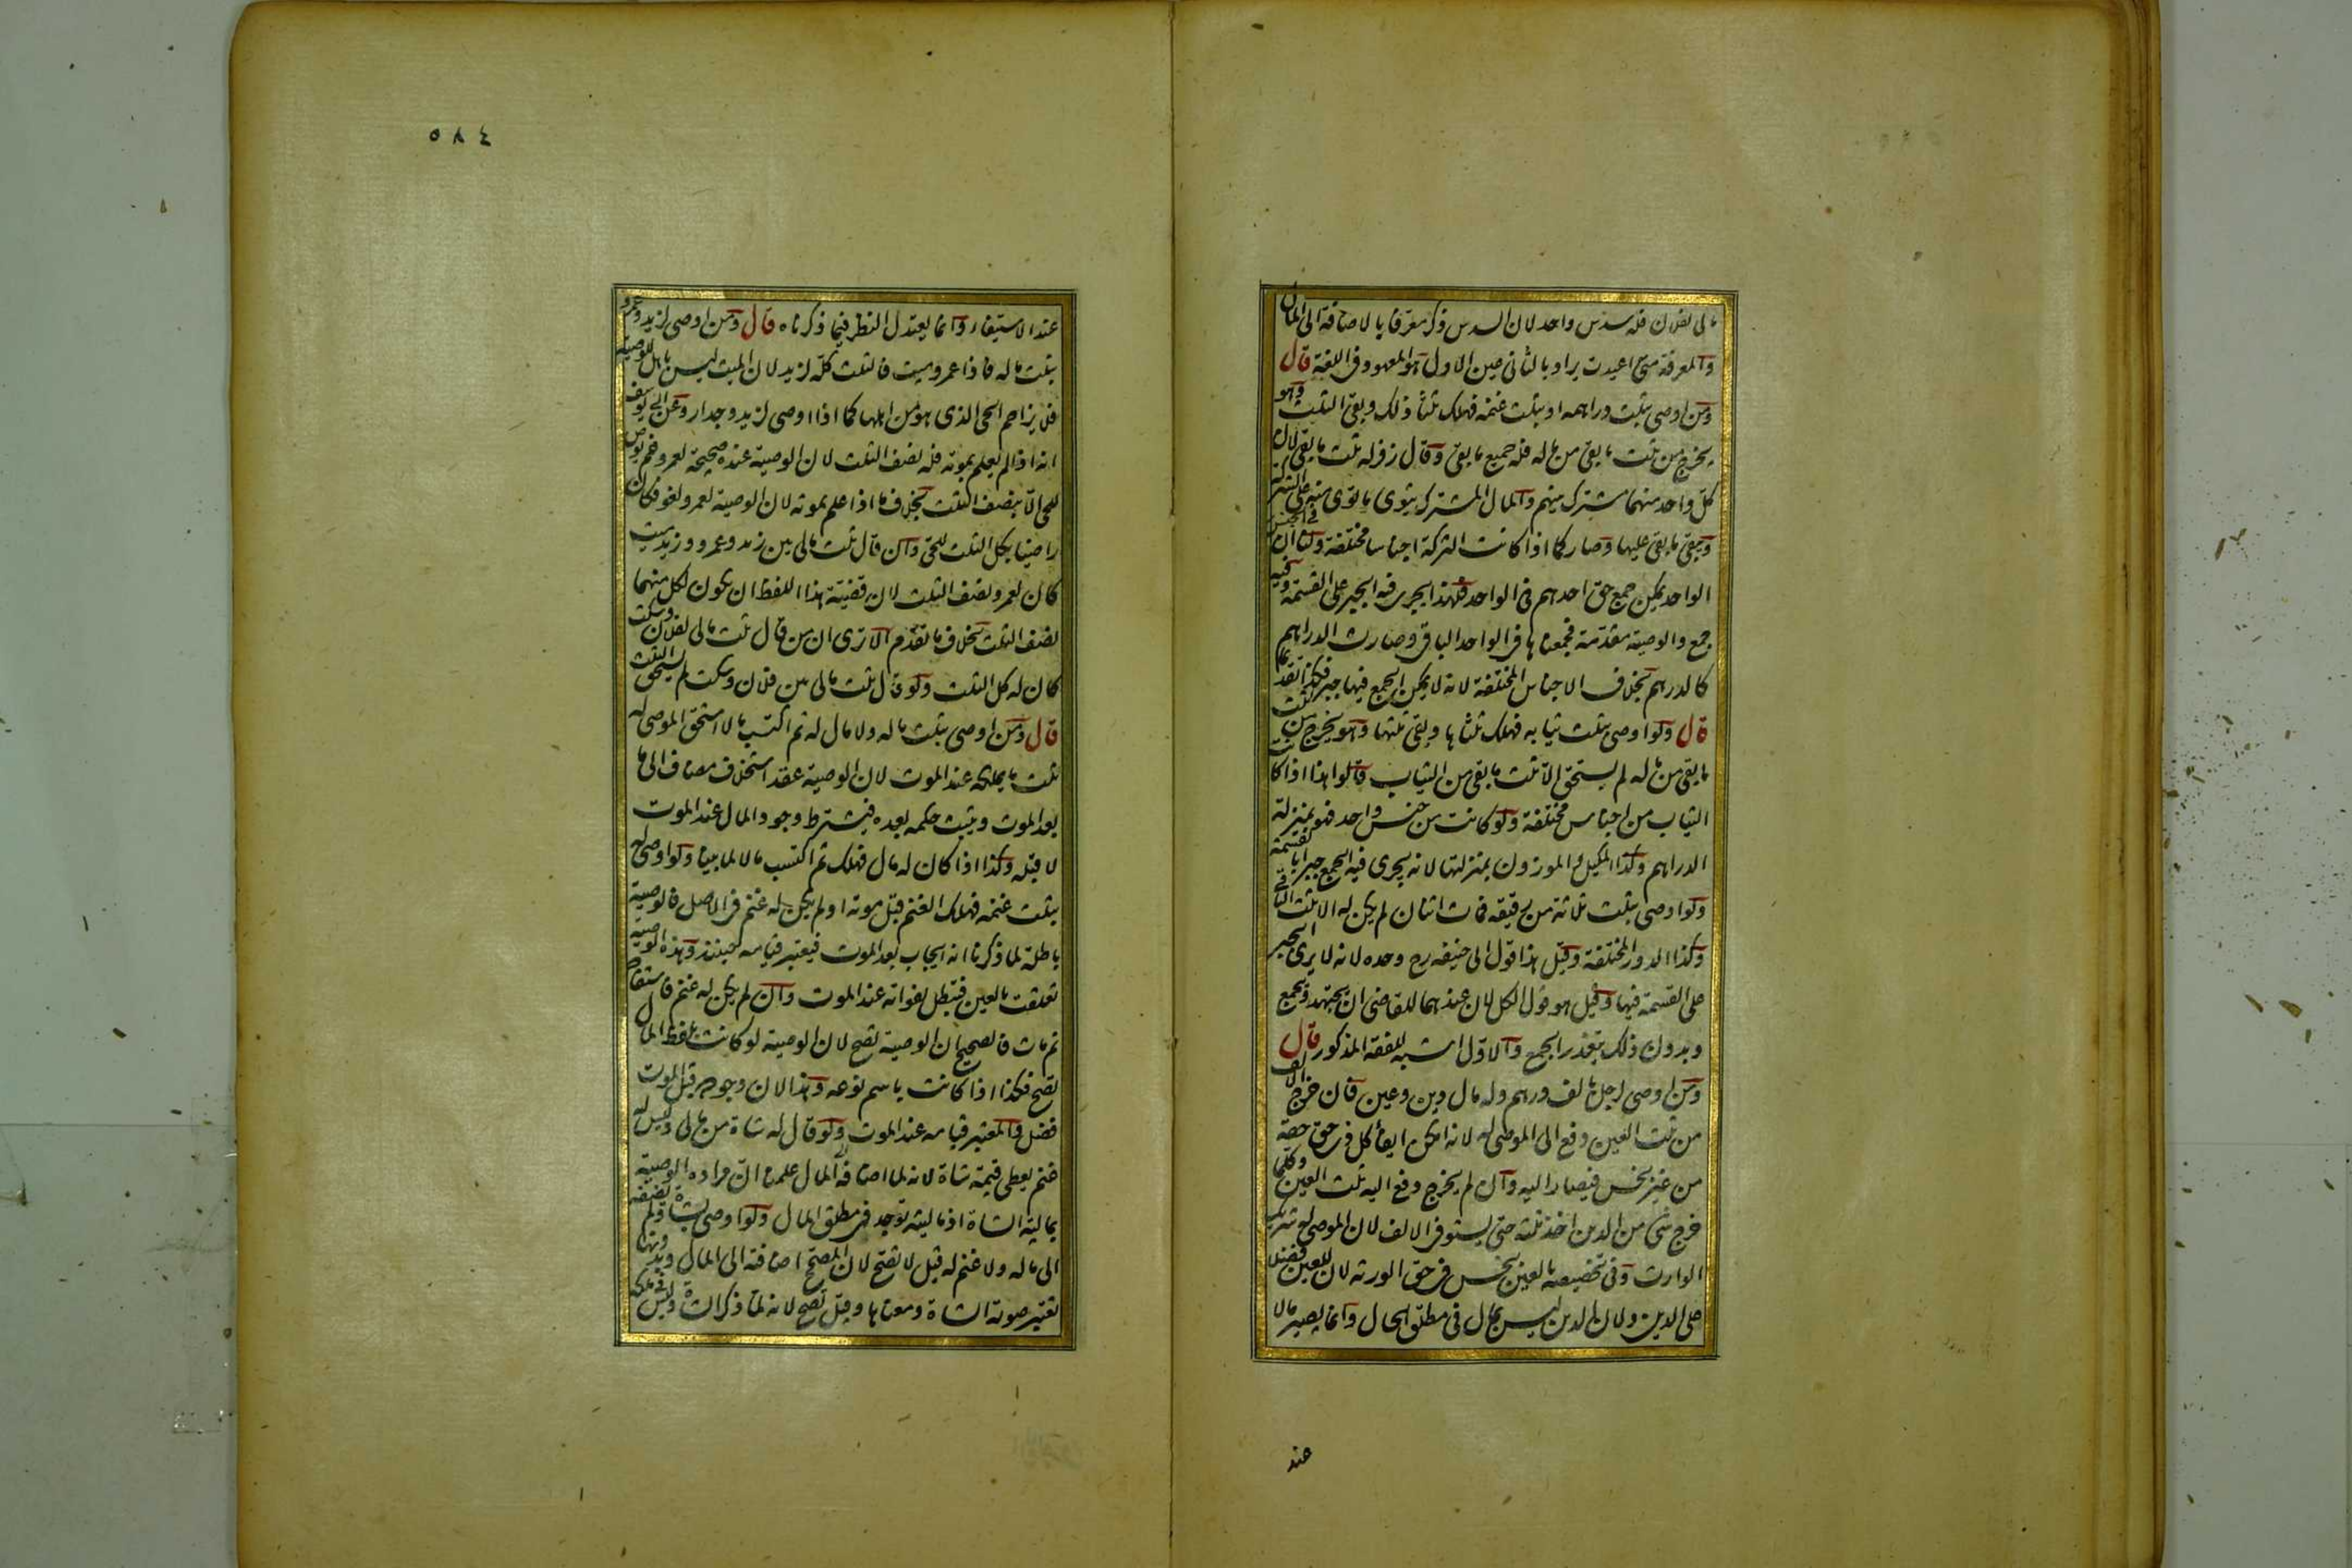 مالى لفلان فله سدس واحد لان السدس ذكر معرفا بالاضافة الى المال
والمعرفة متى اعيدت يراد بالثانى عين الاول هو المعهود فى اللغة قال
ومن اوصى بثلث دراهمه او بثلث غنمه فهلك ثلثا ذلك وبقى الثلث وهو
يخرج من ثلث ما بقى من ماله فله جميع ما بقى وقال زفر له ثلث ما بقى لان
كل واحد منهما مشترك بينهم والمال المشترك يتوى ما توى منه على الشركة
ويبقى ما بقى عليها وصار كما اذا كانت التركة اجناسا مختلفة ولنا ان فى الجنس
الواحد يمكن جمع حق احدهم فى الواحد ولهذا يجرى فيه الجبر على القسمة وفيه
جمع والوصية مقدمة فجمعناها فى الواحد الباقى وصارت الدراهم
كالدرهم بخلاف الاجناس المختلفة لانه لا يمكن الجمع فيها جبرا فكذا تقديما
قال ولو اوصى بثلث ثيابه فهلك ثلثاها وبقى ثلثها وهو يخرج من ثلث
ما بقى من ماله لم يستحق الا ثلث ما بقى من الثياب قالوا هذا اذا كانت
الثياب من اجناس مختلفة ولو كانت من جنس واحد فهو بمنزلة
الدراهم وكذا المكيل والموزون بمنزلتها لانه يجرى فيه الجمع جبرا بالقسمة
ولو اوصى بثلث ثلاثة من رقيقه فمات اثنان لم يكن له الا ثلث الباقى
وكذا الدور المختلفة وقيل هذا قول ابى حنيفه رح وحده لانه لا يرى الجبر
على القسمة فيها وقيل هو قول الكل لان عندهما للقاضى ان يجتهد ويجمع
وبدون ذلك يتعذر الجمع والاول اشبه للفقه المذكور قال
ومن اوصى لرجل بالف درهم وله مال دين وعين فان خرج الالف
من ثلث العين دفع الى الموصى له لانه امكن ايفاء كل ذى حق حقه
من غير بخس فيصار اليه وان لم يخرج دفع اليه ثلث العين وكلما
خرج شئ من الدين اخذ ثلثه حتى يستوفى الالف لان الموصى له شريك
الوارث وفى تخصيصه بالعين بخس فى حق الورثه لان للعين فضلا
على الدين ولان الدين ليس بمال فى مطلق الحال وانما يصير مالا
عند
٥٨٤
عند الاستيفاء وانما يعتدل النظر فيما ذكرناه قال ومن اوصى لزيد وعمرو
بثلث ماله فاذا عمرو ميت فالثلث كله لزيد لان الميت ليس باهل للوصية
فلا يزاحم الحى الذى هو من اهلها كما اذا اوصى لزيد وجدار وعن ابى يوسف
انه اذا لم يعلم بموته فله نصف الثلث لان الوصية عنده صحيحة لعمرو فلم يرض
للحى الا بنصف الثلث بخلاف ما اذا علم بموته لان الوصية لعمرو لغو فكان
راضيا بكل الثلث للحى وان قال ثلث مالى بين زيد وعمرو وزيد ميت
كان لعمرو نصف الثلث لان قضية هذا اللفظ ان يكون لكل منهما
نصف الثلث بخلاف ما تقدم الا ترى ان من قال ثلث مالى لفلان وسكت
كان له كل الثلث ولو قال ثلث مالى بين فلان وسكت لم يستحق الثلث
قال ومن اوصى بثلث ماله ولا مال له ثم اكتسب مالا استحق الموصى له
ثلث ما يملكه عند الموت لان الوصية عقد استخلاف مضاف الى ما
بعد الموت ويثبت حكمه بعده فيشترط وجود المال عند الموت
لا قبله وكذا اذا كان له مال فهلك ثم اكتسب مالا لما بينا ولو اوصى له
بثلث غنمه فهلك الغنم قبل موته او لم يكن له غنم فى الاصل فالوصية
باطلة لما ذكرنا انه ايجاب بعد الموت فيعتبر قيامه حينئذ وهذه الوصية
تعلقت بالعين فتبطل بفواته عند الموت وان لم يكن له غنم فاستفاد
ثم مات فالصحيح ان الوصية تصح لان الوصية لو كانت بلفظ المال
تصح فكذا اذا كانت باسم نوعه وهذا لان وجوده قبل الموت
فضل والمعتبر قيامه عند الموت ولو قال له شاة من مالى وليس له
غنم يعطى قيمة شاة لانه لما اضافه الى المال علمنا ان مراده الوصية
بمالية الشاة اذ ماليته توجد فى مطلق المال ولو اوصى بشاة ولم يضفه
الى ماله ولا غنم له قيل لا تصح لان المصحح اضافة الى المال وبدونها
تعتبر صورة الشاة ومعناها وقيل تصح لانه لما ذكر الشاة وليس فى ملكه